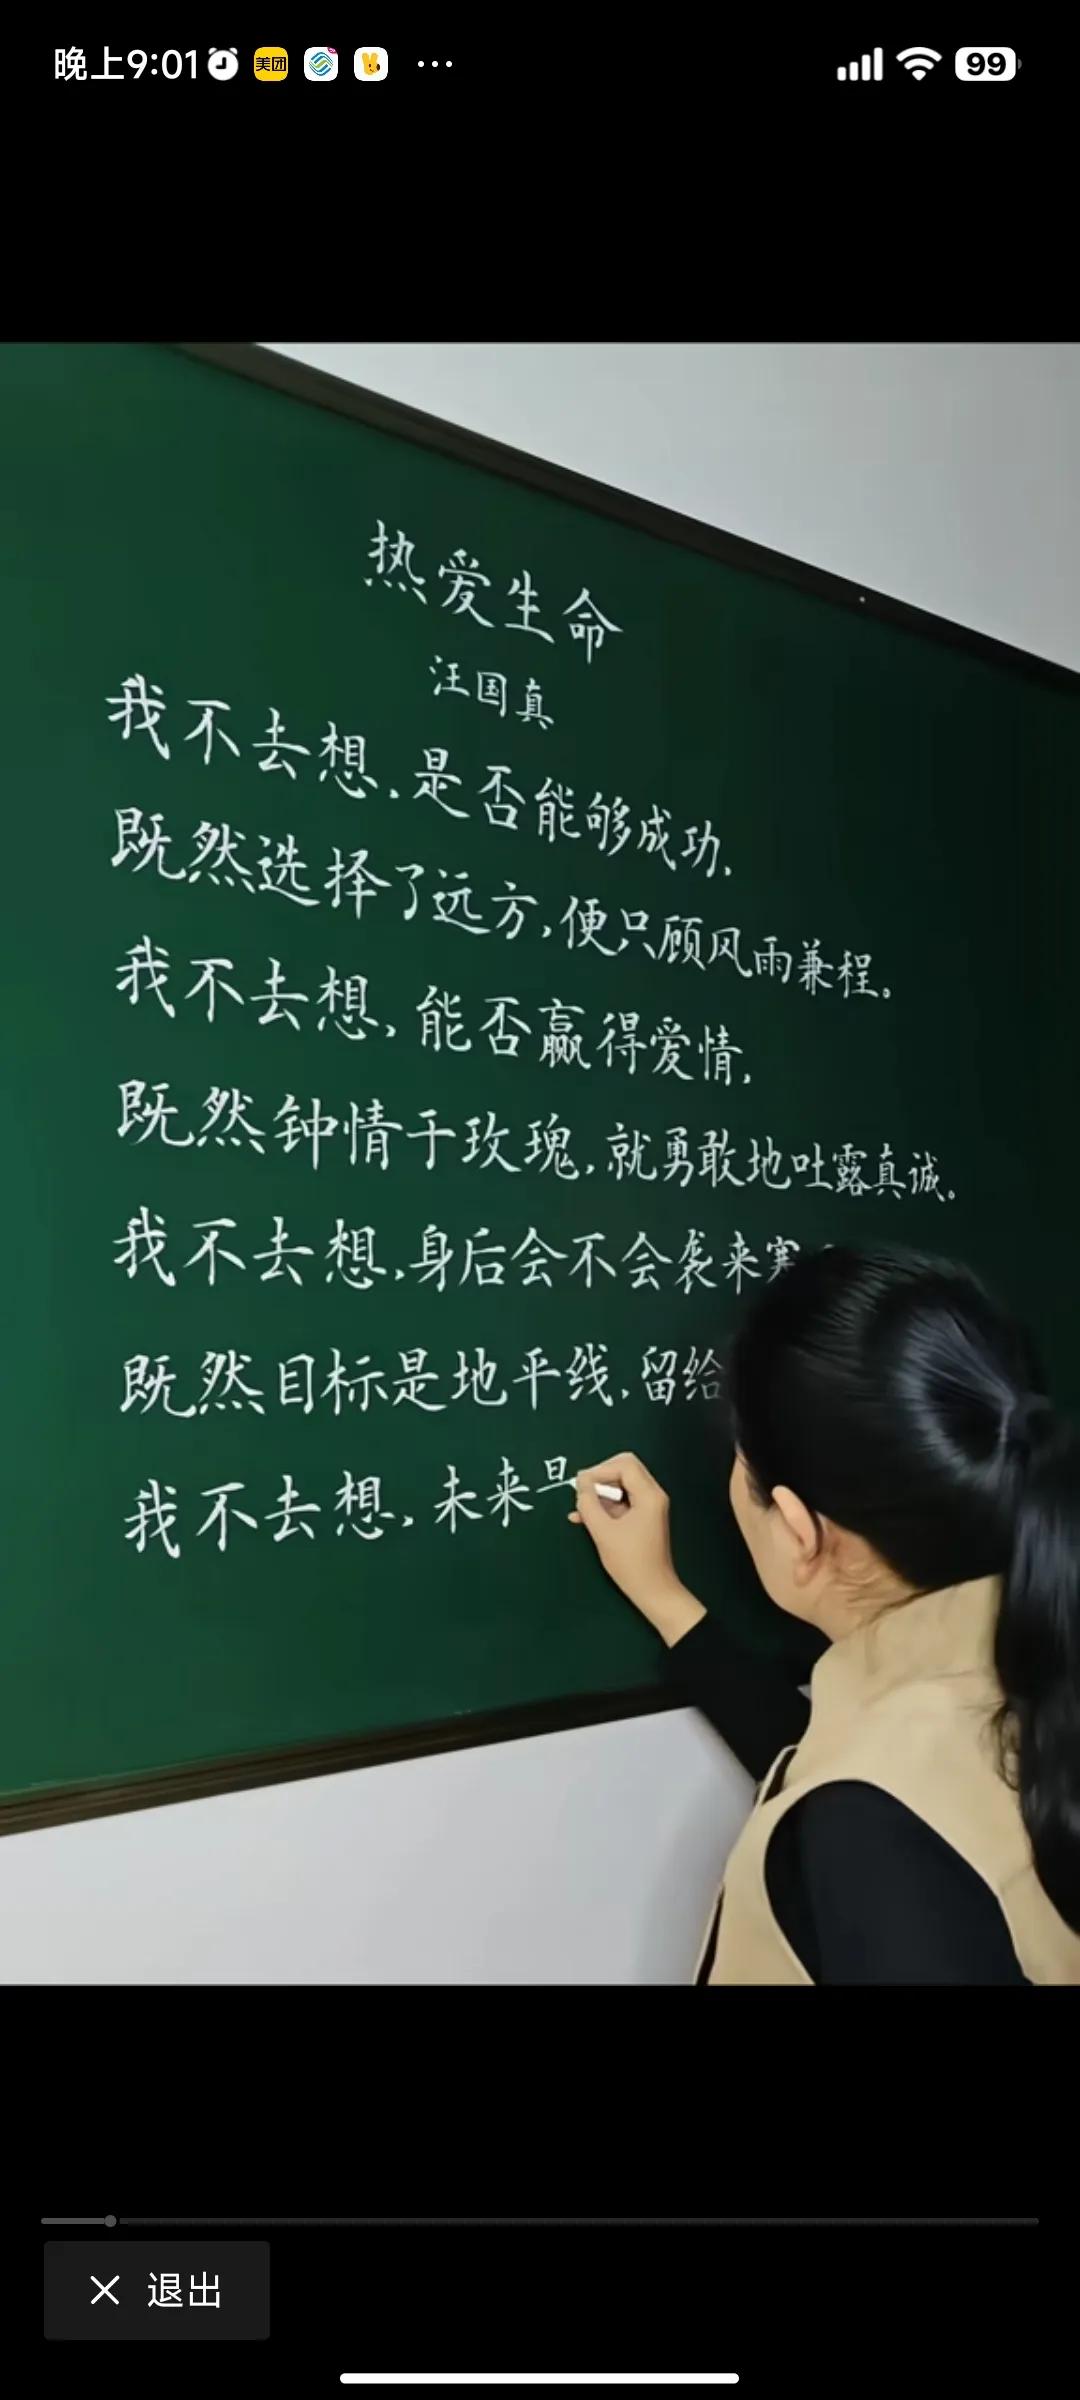 晚上9:01
美团
99
热爱生命
汪国真
我不去想,是否能够成功,
既然选择了远方,便只顾风雨兼程。
我不去想,能否赢得爱情,
既然钟情于玫瑰,就勇敢地吐露真诚。
我不去想,身后会不会袭来寒
既然目标是地平线,留给
我不去想,未来是
退出